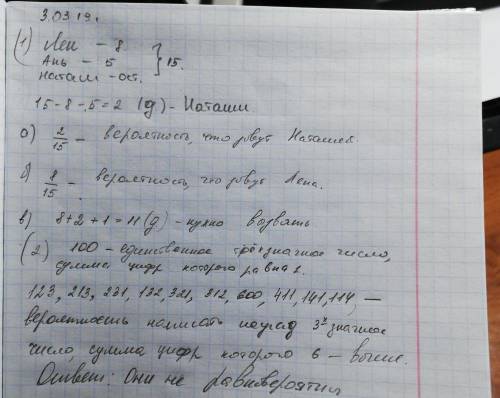 3.03.19.
(1) Лен – 8
Ань – 5 } 15.
Наташ – ост.
15-8-5=2 (д) – Наташи
а) 2/15 – вероятность, что зовут Наташей.
б) 8/15 – вероятность, что зовут Лена.
в) 8+2+1=11(д) – нужно вызвать
(2) 100 – единственное трёхзначное число,
сумма цифр которого равна 1.
123, 213, 231, 132, 321, 312, 600, 411, 141, 114, –
вероятность написать наугад 3х значное
число, сумма цифр которого 6 – выше.
Ответ: Они не равновероятны